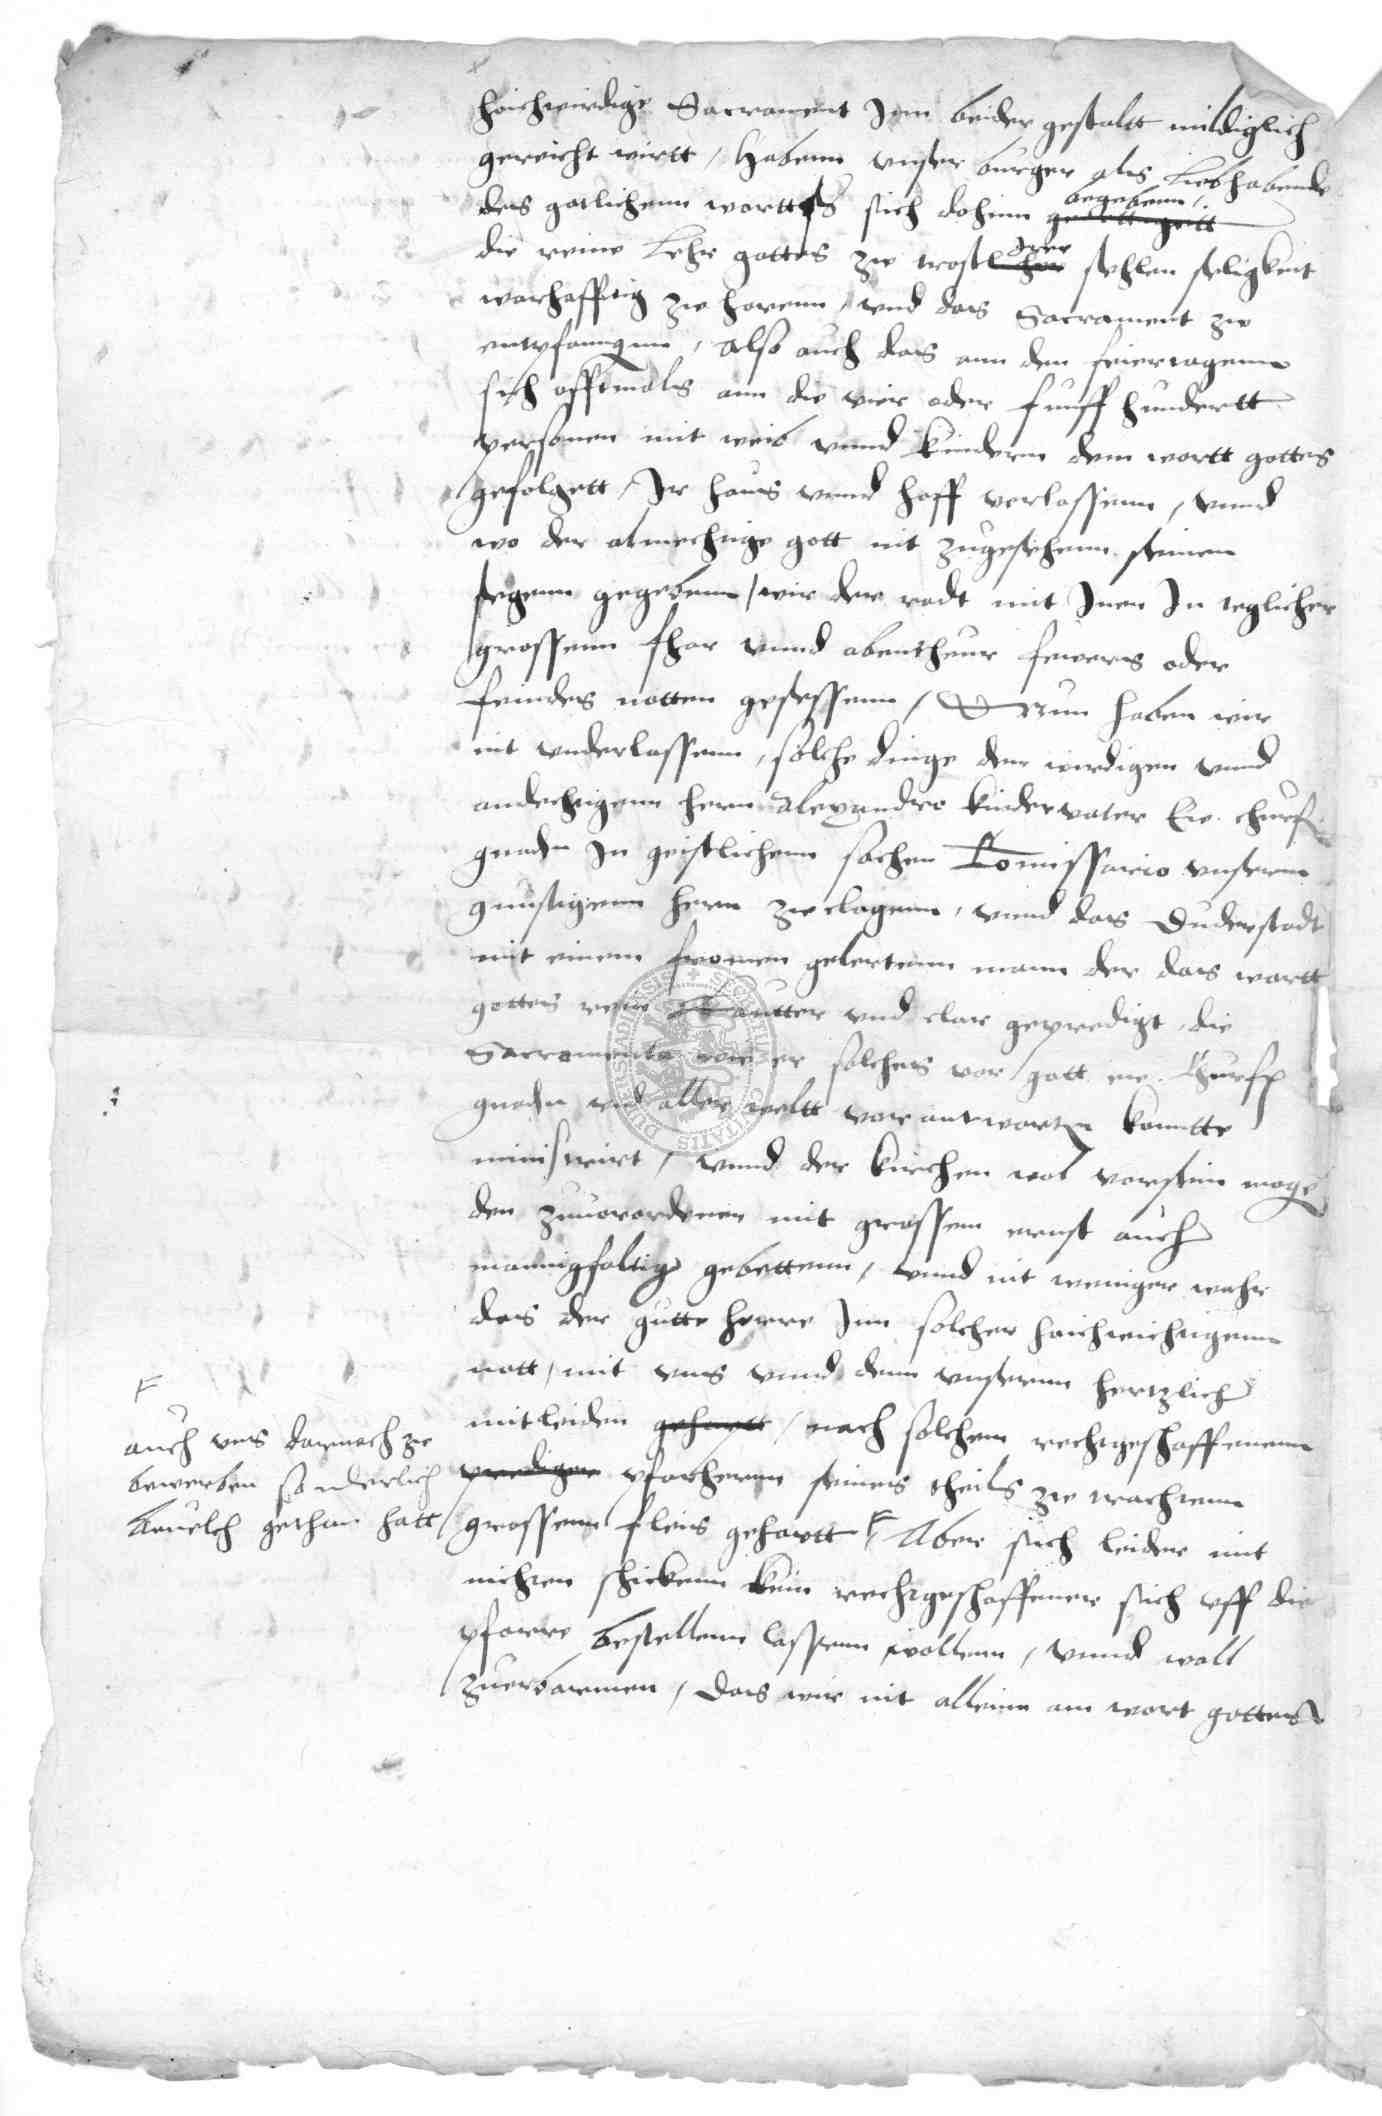 hoichwirdige Sacrament Jnn beider gestaltt mildiglich
gereicht wirtt / Habenn vnser burger als Liebhabende
des gotlichenn wortts sich dohinn begebenn /
die reine Lehr gottes zu trost irer sehlen seligkeit
warhafftig zu horenn / vnd das Sacrament zu
entpfanngenn / also auch das ann den feiertagenn
sich offtmals ann die vier oder funff hundertt
personen mit weib vnnd kindern dem wortt gottes
gefolgett / Jr haus vnnd hoff verlassenn / vnnd
wo der almechtige gott nit zugesehenn seinen
segenn gegebenn / wir der radt mit Jnen Jn teglicher
grossenn fhar vnnd abentheur fewers oder
feindes notten gesessenn / Nun haben wir
nit vnderlassenn / solche dinge dem wirdigen vnnd
andechtigenn hern Alexandro kindervater Ew. churf.
gnaden Jn geistlichenn sachen Comissario vnserm
gunstigenn hern zu clagenn / vnnd das Duderstadt
mit einem fromen gelertenn mann der das wortt
gottes rein lautter vnd clar gepredigt / die
Sacramenta wie er solches vor gott ew. Churf.
gnaden vnd aller weltt vorantworten konntte
ministrirt / vnnd der kirchen wol vorsein moge
den zuuorordenen mit grossem ernst auch
mannigfaltig gebettenn / vnnd nit weniger wahr
das der gutte herre Jnn solcher hoichwichtigenn
nott / mit vns vnnd denn vnsernn hertzlich
mitleiden gehaptt / nach solchem rechtgeschaffenenn
prediger pfarhernn seines theils zu trachtenn
grossenn fleis gehaptt F / Aber sich leider mit
nichten schickenn kein rechtgeschaffener sich vff die
pfarre bestellenn lassenn wollenn / vnnd woll
zuerbarmen / Das wir nit alleinn am wort gottes
F
auch vns darnach zu
bewerben sonderlich
beuelch gethan hatt